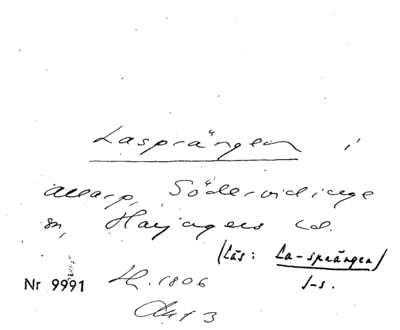 Lasprängen i
allarp, Södervidinge
sn, Harjagers hd.
(Läs: La-sprängen)
Nr 9991 H. 1806
J-s.